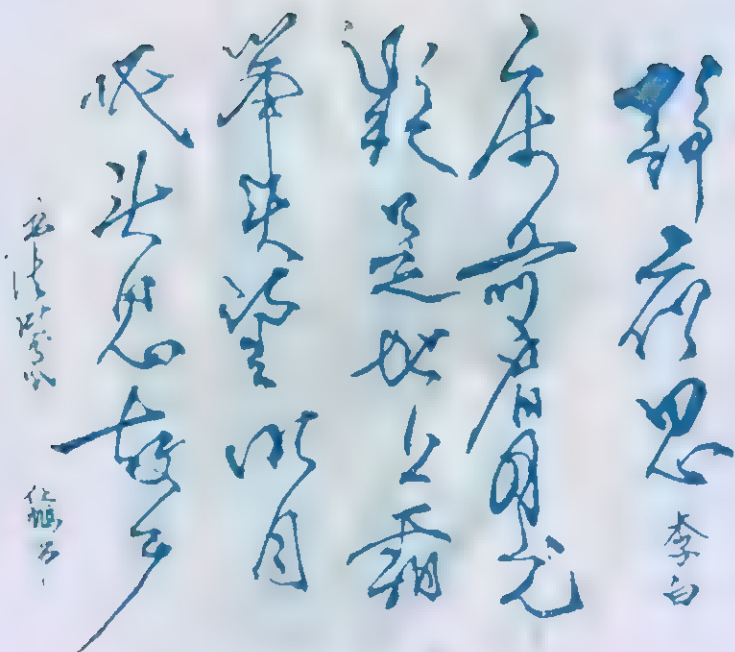 静夜思 李白
床前看月光
疑是地上霜
举头望明月
低头思故乡